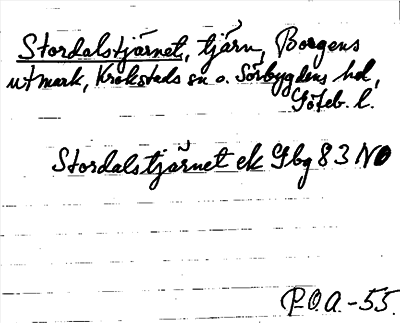 Stordalstjärnet, tjärn, Borgens
utmark, Krokstads sn o. Sörbygdens hd,
Göteb. l.
Stordalstjärnet ek Gbg 83 NO
P.O.A.-55.